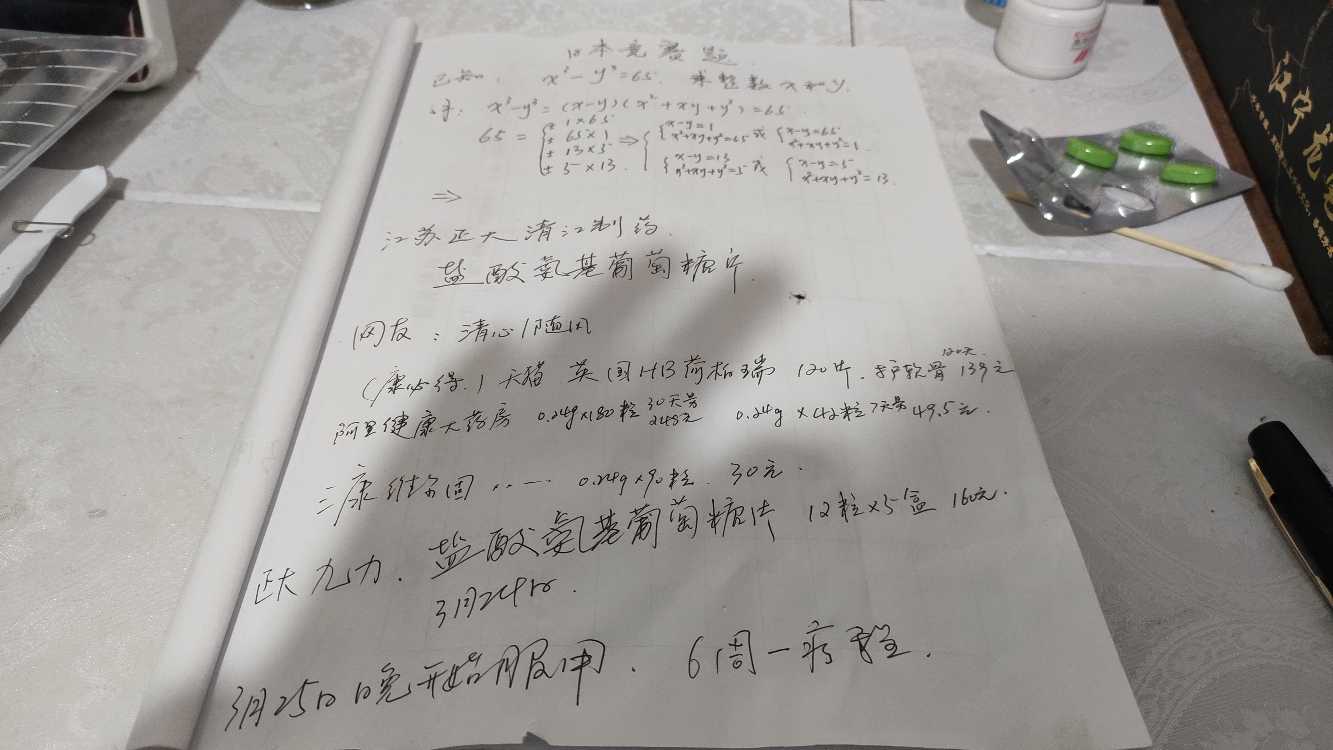 日本竞赛题
已知: x³-y³=65. 求整数x和y.
解: x³-y³=(x-y)(x²+xy+y²)=65
65 = { ±1×65 ±65×1 ±13×5 ±5×13. ⇒ { { x-y=1 x²+xy+y²=65 或 { x-y=65 x²+xy+y²=1 { x-y=13 x²+xy+y²=5 或 { x-y=5 x²+xy+y²=13.
⇒
江苏正大清江制药.
盐酸氨基葡萄糖片.
网友: 清心随风
(康必得.) 天猫 英国HB荷柏瑞 120片. 护软骨 120天. 139元
阿里健康大药房 0.24g×180粒 30天量 248元 0.24g×42粒 7天量 49.5元.
三康维尔固 ..... 0.24g×90粒. 30元.
正大 九力. 盐酸氨基葡萄糖片 12粒×5盒 160元.
3月24日.
3月25日晚开始服用. 6周一疗程.
辽宁